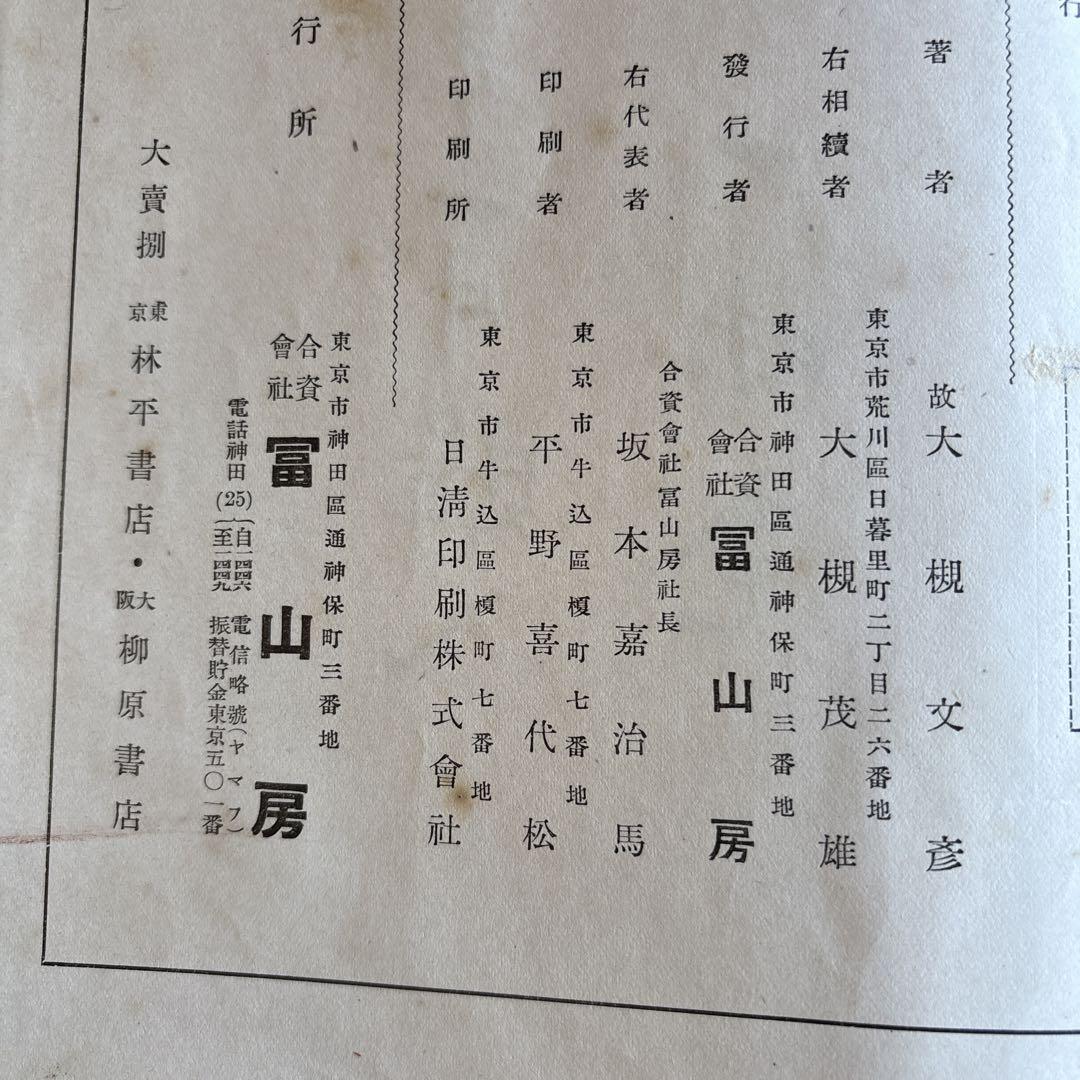 著者　故大槻文彦
東京市荒川區日暮里町二丁目二六番地
右相續者　大槻茂雄
東京市神田區通神保町三番地
發行者　合資會社 冨山房
合資會社冨山房社長
右代表者　坂本嘉治馬
東京市牛込區榎町七番地
印刷者　平野喜代松
東京市牛込區榎町七番地
印刷所　日淸印刷株式會社
東京市神田區通神保町三番地
行所　合資會社 冨山房
電話神田(25){自一四四六 至一四四九　電信略號(ヤマフ) 振替貯金東京五〇一番
大賣捌　東京 林平書店・大阪 柳原書店